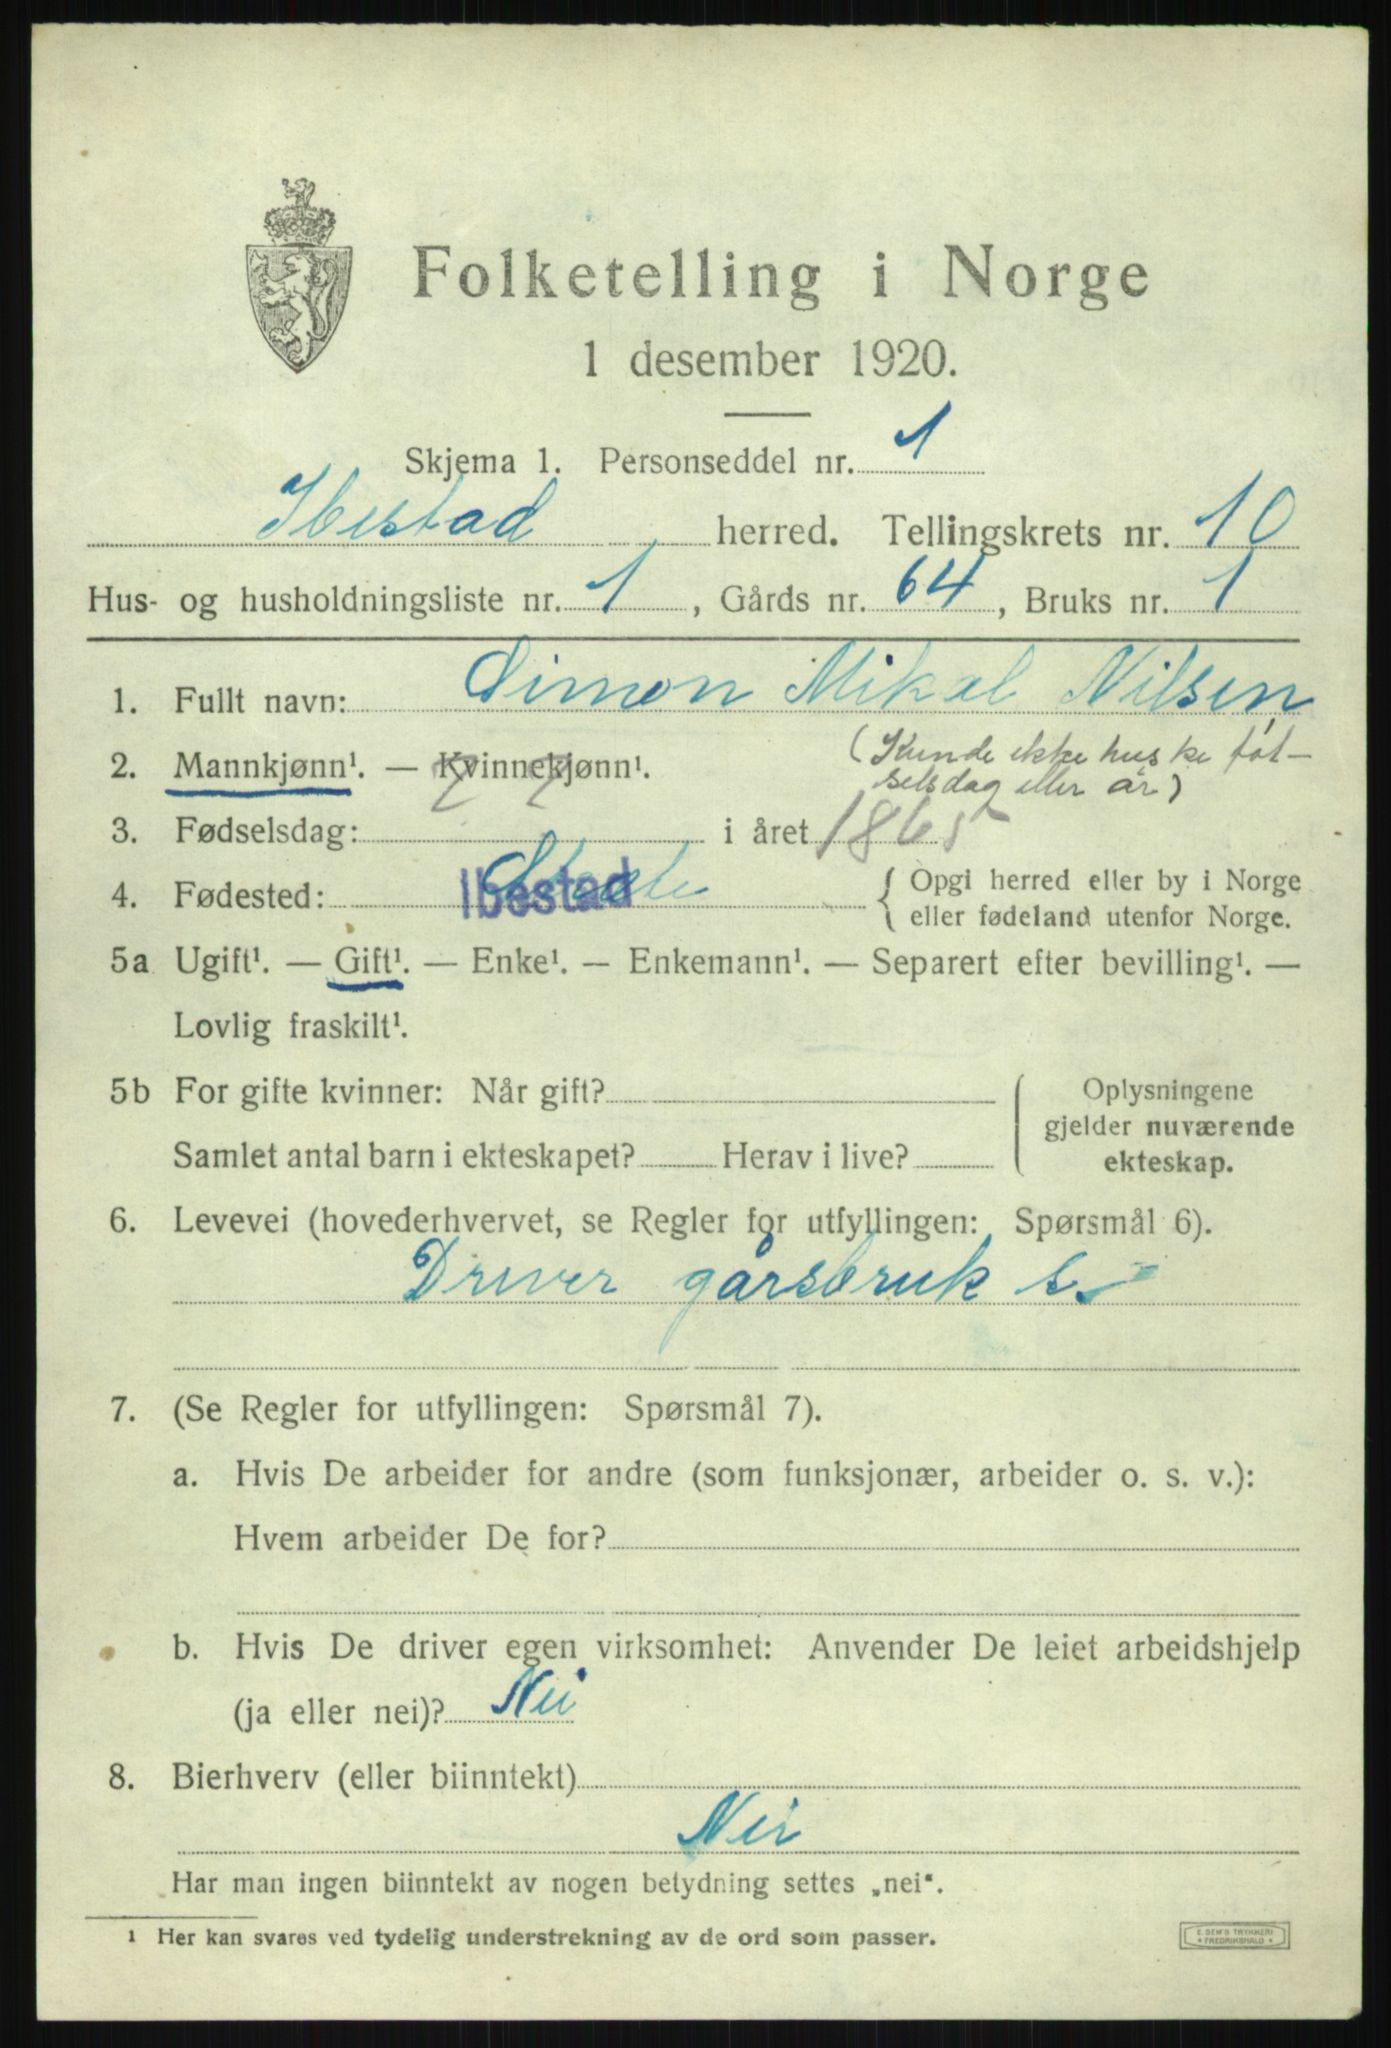 Folketelling i Norge
1 desember 1920.
Skjema 1. Personseddel nr. 1
Ibestad herred. Tellingskrets nr. 10
Hus- og husholdningsliste nr. 1, Gårds nr. 64, Bruks nr. 1
1. Fullt navn: Simon Mikal Nilsen
2. Mannkjønn¹. — Kvinnekjønn¹. (Kunde ikke huske føt-
selsdag eller år)
3. Fødselsdag: i året 1865
4. Fødested: Ibestad { Opgi herred eller by i Norge
eller fødeland utenfor Norge.
5a Ugift¹. — Gift¹. — Enke¹. — Enkemann¹. — Separert efter bevilling¹. —
Lovlig fraskilt¹.
5b For gifte kvinner: Når gift? ( Oplysningene
gjelder nuværende
Samlet antal barn i ekteskapet? Herav i live? ekteskap.
6. Levevei (hovederhvervet, se Regler for utfyllingen: Spørsmål 6).
Driver gårsbruk s.
7. (Se Regler for utfyllingen: Spørsmål 7).
a. Hvis De arbeider for andre (som funksjonær, arbeider o. s. v.):
Hvem arbeider De for?
b. Hvis De driver egen virksomhet: Anvender De leiet arbeidshjelp
(ja eller nei)? Nei
8. Bierhverv (eller biinntekt)
Nei
Har man ingen biinntekt av nogen betydning settes „nei“.
¹ Her kan svares ved tydelig understrekning av de ord som passer.
E. SEM'S TRYKKERI
* FREDRIKSHALD *